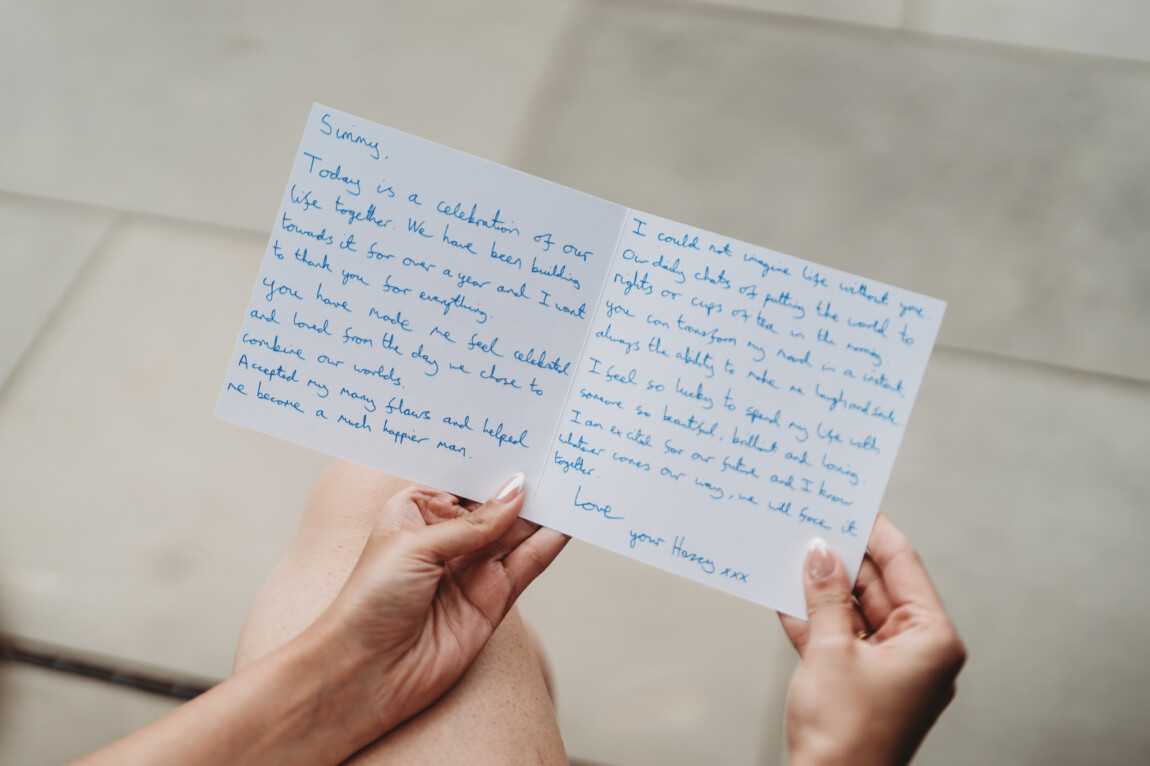 Summy,
Today is a celebration of our
life together. We have been building
towards it for over a year and I want
to thank you for everything.
You have made me feel celebrated
and loved from the day we chose to
combine our worlds.
Accepted my many flaws and helped
me become a much happier man.
I could not imagine life without you.
Our daily chats of putting the world to
rights or cups of tea in the morning
you can transform my mood in a instant,
always the ability to make me laugh and smile.
I feel so lucky to spend my life with
someone so beautiful, brilliant and loving.
I am excited for our future and I know
whatever comes our way, we will face it
together.
Love
your Hazey xxx